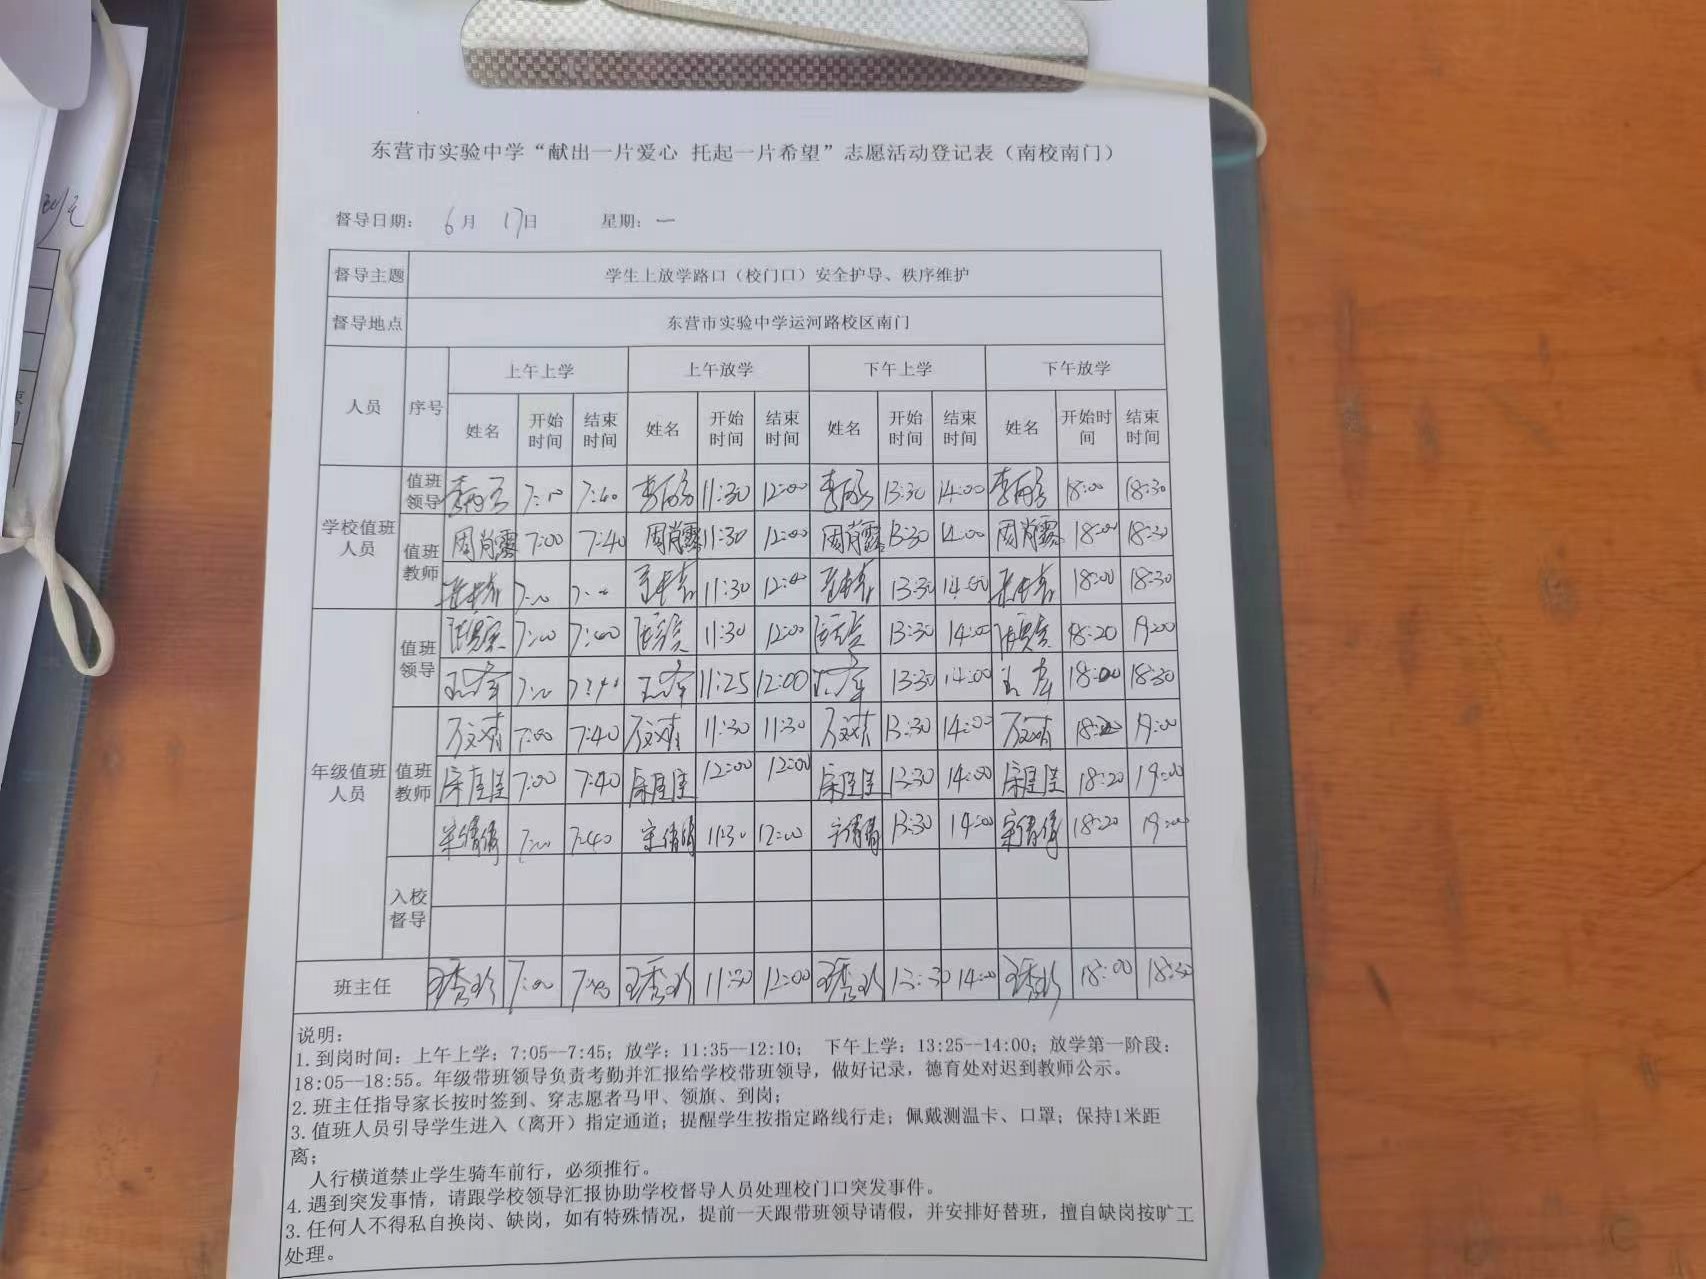 东营市实验中学“献出一片爱心 托起一片希望”志愿活动登记表（南校南门）
督导日期： 6月 17日 星期：一
督导主题 学生上放学路口（校门口）安全护导、秩序维护
督导地点 东营市实验中学运河路校区南门
人员 序号 上午上学 上午放学 下午上学 下午放学
姓名 开始时间 结束时间 姓名 开始时间 结束时间 姓名 开始时间 结束时间 姓名 开始时间 结束时间
学校值班人员 值班领导 7:40 11:30 12:00 13:30 14:00 18:00 18:30
值班教师 周肖霞 7:00 7:40 周肖霞 11:30 12:00 周肖霞 13:30 14:00 周肖霞 18:00 18:30
11:30 12:00 13:30 14:00 18:00 18:30
年级值班人员 值班领导 7:00 7:40 11:30 12:00 13:30 14:00 18:20 19:00
11:25 12:00 13:30 14:00 18:00 18:30
值班教师 万文靖 7:00 7:40 万文靖 11:30 11:30 万文靖 13:30 14:00 万文靖 19:00
宋佳佳 7:00 7:40 宋佳佳 12:00 12:00 宋佳佳 13:30 14:00 宋佳佳 18:20 19:00
宋倩倩 7:00 7:40 宋倩倩 11:30 12:00 宋倩倩 13:30 14:00 宋倩倩 18:20 19:00
入校督导
班主任 王秀珍 7:00 7:40 王秀珍 11:30 12:00 王秀珍 13:30 14:00 王秀珍 18:00 18:30
说明：
1.到岗时间：上午上学：7:05--7:45；放学：11:35--12:10； 下午上学：13:25--14:00；放学第一阶段：
18:05--18:55。年级带班领导负责考勤并汇报给学校带班领导，做好记录，德育处对迟到教师公示。
2.班主任指导家长按时签到、穿志愿者马甲、领旗、到岗；
3.值班人员引导学生进入（离开）指定通道；提醒学生按指定路线行走；佩戴测温卡、口罩；保持1米距
离；
人行横道禁止学生骑车前行，必须推行。
4.遇到突发事情，请跟学校领导汇报协助学校督导人员处理校门口突发事件。
3.任何人不得私自换岗、缺岗，如有特殊情况，提前一天跟带班领导请假，并安排好替班，擅自缺岗按旷工
处理。